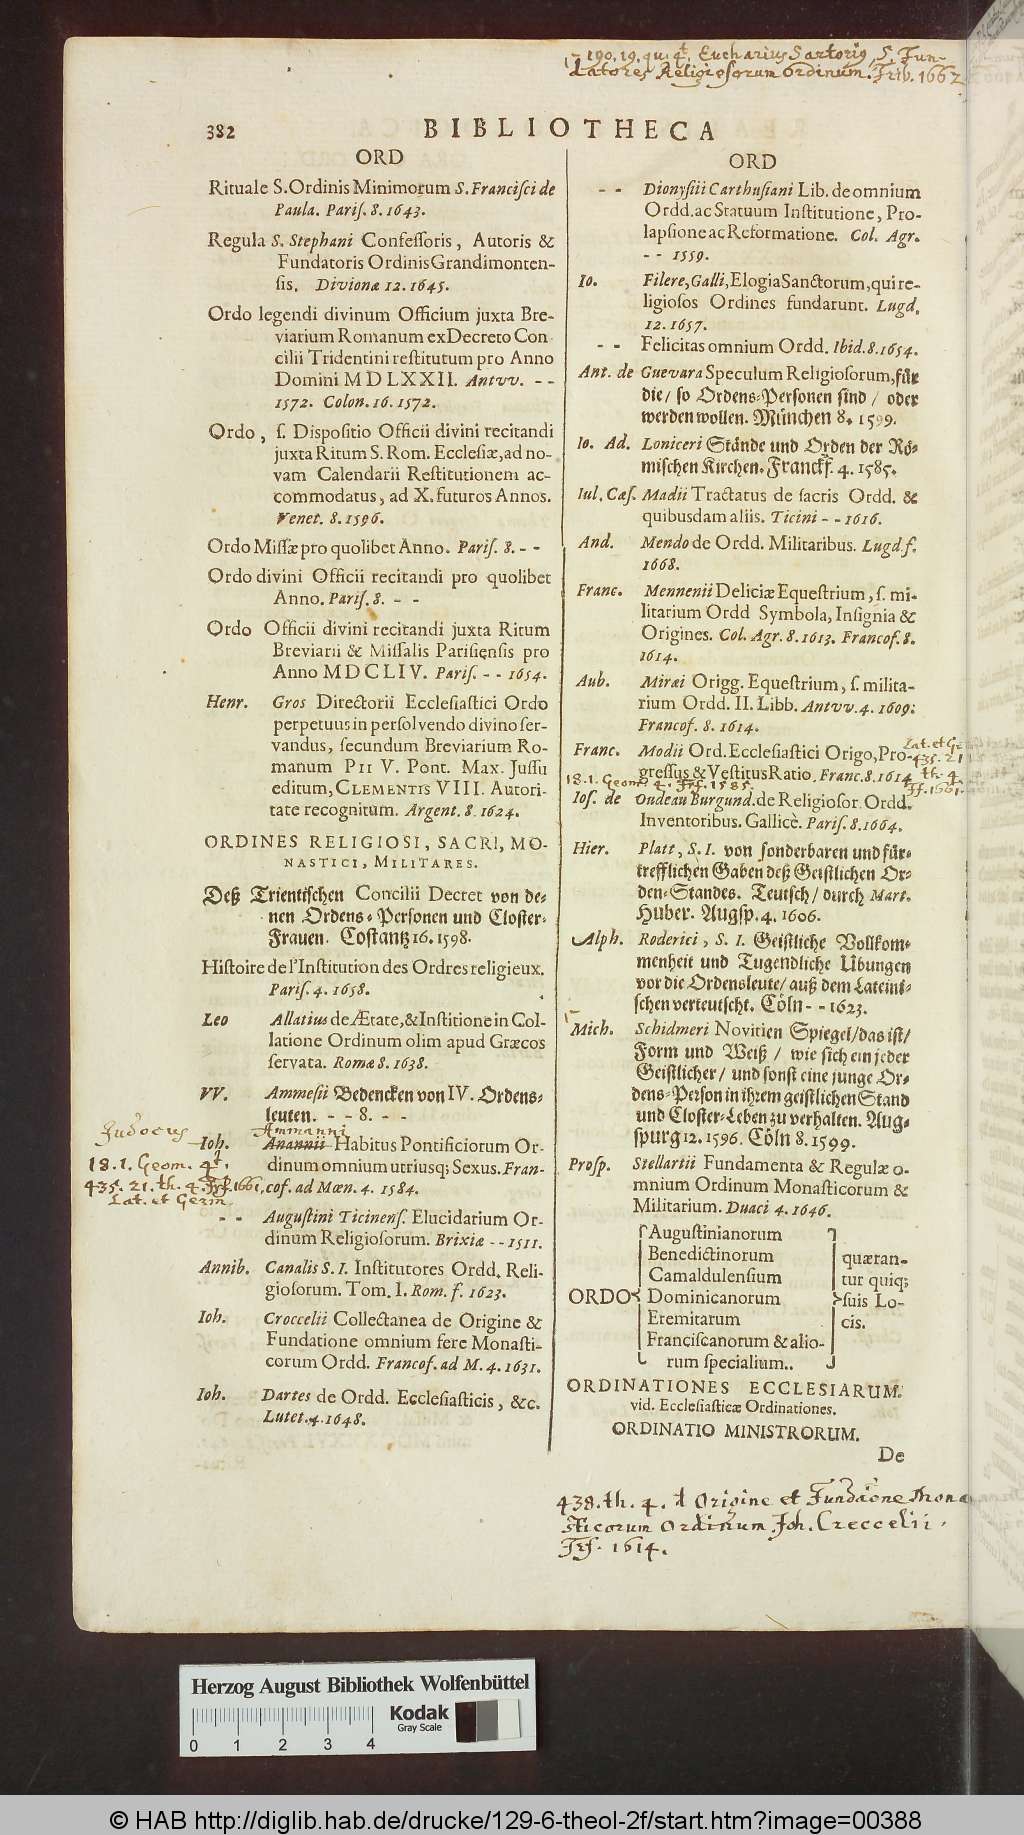 190. 19. qu. 4. Eucharius Sartorius, S. Fun-
datores Religiosorum Ordinum. Frib. 1662
382
BIBLIOTHECA
ORD
Rituale S. Ordinis Minimorum S. Francisci de
Paula. Paris. 8. 1643.
Regula S. Stephani Confessoris, Autoris &
Fundatoris Ordinis Grandimonten-
sis. Divionæ 12. 1645.
Ordo legendi divinum Officium juxta Bre-
viarium Romanum ex Decreto Con
cilii Tridentini restitutum pro Anno
Domini MDLXXII. Antvv. - -
1572. Colon. 16. 1572.
Ordo, s. Dispositio Officii divini recitandi
juxta Ritum S. Rom. Ecclesiæ, ad no-
vam Calendarii Restitutionem ac-
commodatus, ad X. futuros Annos.
Venet. 8. 1596.
Ordo Missæ pro quolibet Anno. Paris. 8. - -
Ordo divini Officii recitandi pro quolibet
Anno. Paris. 8. - -
Ordo Officii divini recitandi juxta Ritum
Breviarii & Missalis Parisiensis pro
Anno MDCLIV. Paris. - - 1654.
Henr. Gros Directorii Ecclesiastici Ordo
perpetuus in persolvendo divino ser-
vandus, secundum Breviarium Ro-
manum PII V. Pont. Max. Jussu
editum, CLEMENTIS VIII. Autori-
tate recognitum. Argent. 8. 1624.
ORDINES RELIGIOSI, SACRI, MO-
NASTICI, MILITARES.
Deß Trientischen Concilii Decret von de-
nen Ordens-Personen und Closter-
Frauen. Costantz 16. 1598.
Histoire de l'Institution des Ordres religieux.
Paris. 4. 1658.
Leo Allatius de Ætate, & Institione in Col-
latione Ordinum olim apud Græcos
servata. Romæ 8. 1638.
VV. Ammesii Bedencken von IV. Ordens-
leuten. - - 8. - -
Judocus
Ammanni
Ioh. Anannii Habitus Pontificiorum Or-
dinum omnium utriusq; Sexus. Fran-
cof. ad Mœn. 4. 1584.
18. 1. Geom. 4t.
435. 21. th. 4. Frf. 1661.
Lat. et Germ.
- - Augustini Ticinens. Elucidarium Or-
dinum Religiosorum. Brixiæ - - 1511.
Annib. Canalis S. I. Institutores Ordd. Reli-
giosorum. Tom. I. Rom. f. 1623.
Ioh. Croccelii Collectanea de Origine &
Fundatione omnium fere Monasti-
corum Ordd. Francof. ad M. 4. 1631.
Ioh. Dartes de Ordd. Ecclesiasticis, &c.
Lutet. 4. 1648.
ORD
- - Dionysiii Carthusiani Lib. de omnium
Ordd. ac Statuum Institutione, Pro-
lapsione ac Reformatione. Col. Agr.
- - 1559.
Io. Filere, Galli, Elogia Sanctorum, qui re-
ligiosos Ordines fundarunt. Lugd.
12. 1657.
- - Felicitas omnium Ordd. Ibid. 8. 1654.
Ant. de Guevara Speculum Religiosorum, für
die / so Ordens-Personen sind / oder
werden wollen. München 8. 1599.
Io. Ad. Loniceri Stände und Orden der Rö-
mischen Kirchen. Franckf. 4. 1585.
Iul. Cæs. Madii Tractatus de sacris Ordd. &
quibusdam aliis. Ticini - - 1616.
And. Mendo de Ordd. Militaribus. Lugd f.
1668.
Franc. Mennenii Deliciæ Equestrium, s. mi-
litarium Ordd Symbola, Insignia &
Origines. Col. Agr. 8. 1613. Francof. 8.
1614.
Aub. Miræi Origg. Equestrium, s. milita-
rium Ordd. II. Libb. Antvv. 4. 1609.
Francof. 8. 1614.
Franc. Modii Ord. Ecclesiastici Origo, Pro-
gressus & Vestitus Ratio. Franc. 8. 1614
Lat. et Ge
435. 21
th. 4.
Ff. 1661.
18. 1. Geom. 4. Frf. 1585.
Ios. de Oudeau Burgund. de Religiosor. Ordd.
Inventoribus. Gallicè. Paris. 8. 1664.
Hier. Platt, S. I. von sonderbaren und für-
trefflichen Gaben deß Geistlichen Or-
den-Standes. Teutsch / durch Mart.
Huber. Augsp. 4. 1606.
Alph. Roderici, S. I. Geistliche Vollkom-
menheit und Tugendliche Übungen
vor die Ordensleute / auß dem Lateini-
schen verteutscht. Cöln - - 1623.
Mich. Schidmeri Novitien Spiegel / das ist /
Form und Weiß / wie sich ein jeder
Geistlicher / und sonst eine junge Or-
dens-Person in ihrem geistlichen Stand
und Closter-Leben zu verhalten. Aug-
spurg 12. 1596. Cöln 8. 1599.
Prosp. Stellartii Fundamenta & Regulæ o-
mnium Ordinum Monasticorum &
Militarium. Duaci 4. 1646.
Augustinianorum
Benedictinorum quæran-
Camaldulensium tur quiq;
ORDO Dominicanorum suis Lo-
Eremitarum cis.
Franciscanorum & alio-
rum specialium..
ORDINATIONES ECCLESIARUM.
vid. Ecclesiasticæ Ordinationes.
ORDINATIO MINISTRORUM.
De
438. th. 4. d Origine et Fundaõne Mona
sticorum Ordinum Joh. Creccelii.
Frf. 1614.
Herzog August Bibliothek Wolfenbüttel
Kodak
Gray Scale
0 1 2 3 4
© HAB http://diglib.hab.de/drucke/129-6-theol-2f/start.htm?image=00388